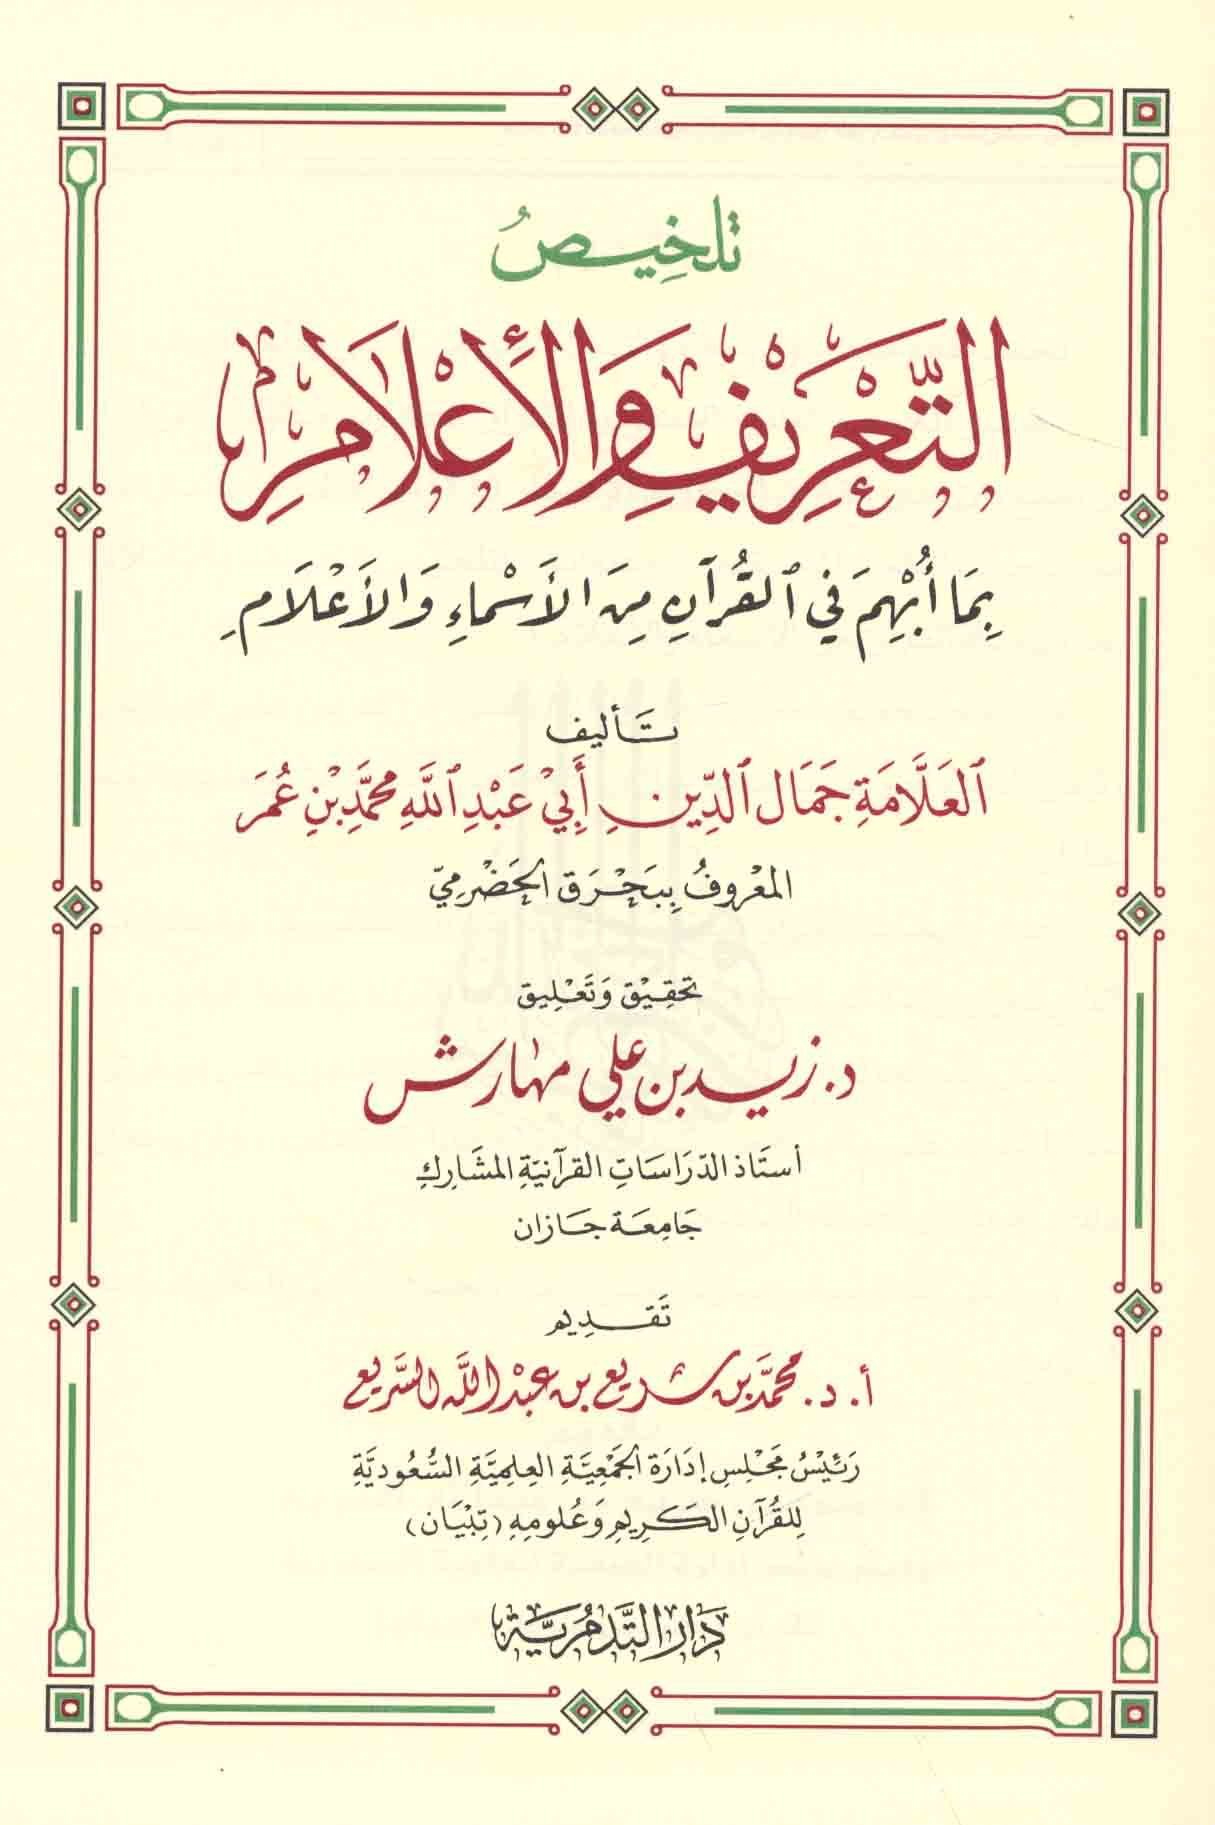 تلخيصُ
التَّعْرِيفِ وَالْأَعْلَامِ
بِمَا أُبْهِمَ فِي ٱلْقُرآنِ مِنَ الْأَسْمَاءِ وَالْأَعْلَامِ
تَأليف
ٱلعَلَّامَةِ جَمَال ٱلدِّينِ أَبِيْ عَبْدِ ٱللَّهِ مُحَمَّد بْنِ عُمَرَ
المَعْرُوفُ بِبَحْرَق الحَضْرَمِيّ
تحقِيْق وَتَعْلِيق
د. زيد بن علي مهارش
أستَاذ الدِّرَاسَاتِ القرآنيَّةِ المشَارِكِ
جَامِعَة جَازان
تَقديم
أ. د. محمَّد بن سريع بن عبْد اللَّه السَّريع
رَئيْسُ مَجْلِسِ إدَارَة الجَمْعِيَّةِ العِلمِيَّةِ السُّعُوديَّةِ
لِلقُرآنِ الكَرِيمِ وَعُلومِهِ (تِبْيَان)
دَارُ التَّدمُريَّة